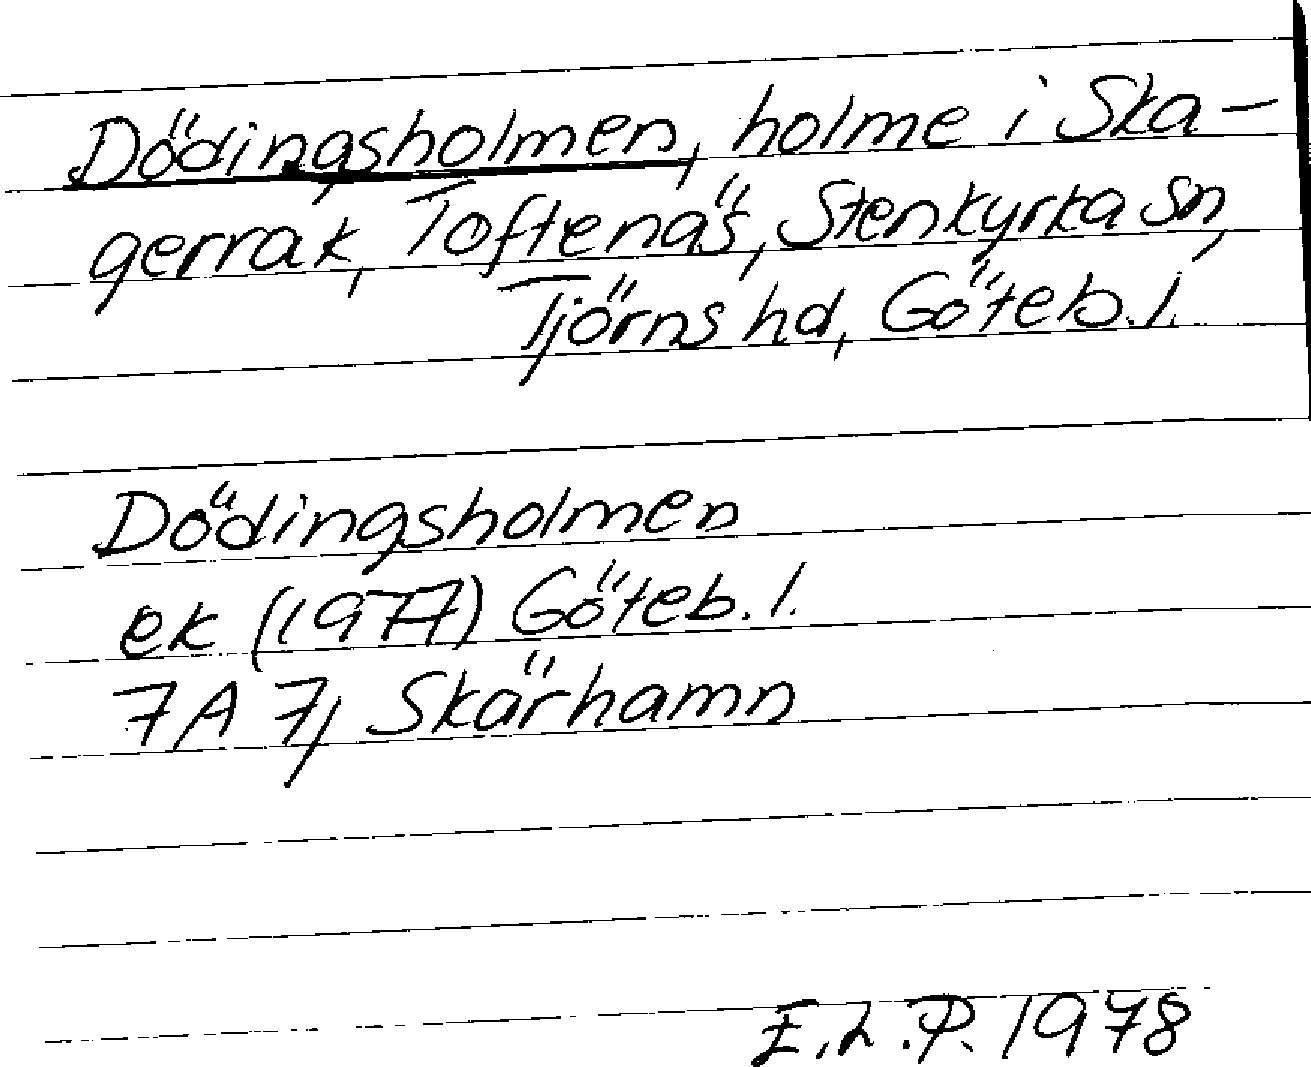 Dödingsholmen, holme i Ska-
gerrak, Toftenäs, Stenkyrka sn,
Tjörns hd, Göteb. l.
Dödingsholmen
ek (1977) Göteb. l.
7A 7j Skärhamn
E.L.P. 1978